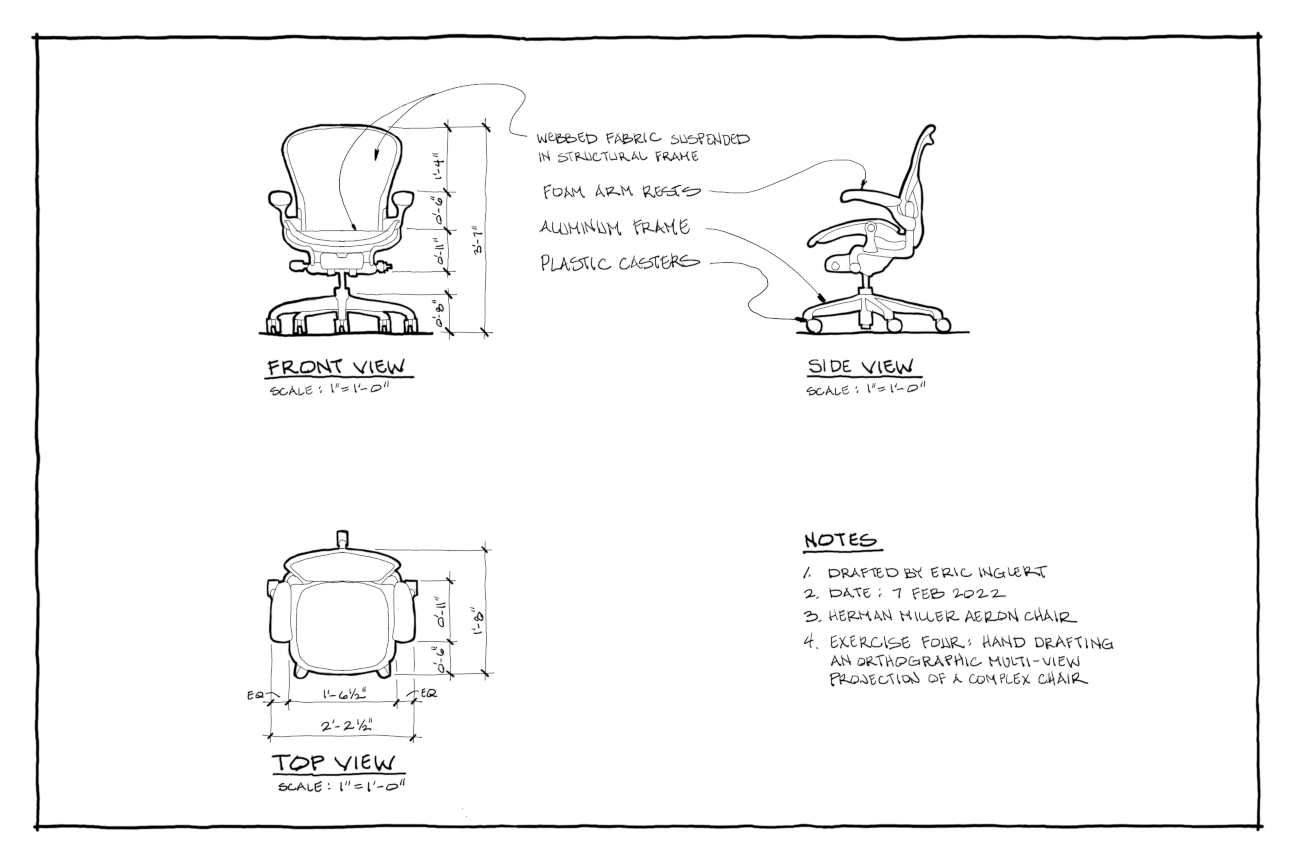 WEBBED FABRIC SUSPENDED
IN STRUCTURAL FRAME
FOAM ARM RESTS
ALUMINUM FRAME
PLASTIC CASTERS
1'-4"
0'-6"
0'-11"
0'-8"
3'-7"
FRONT VIEW
SCALE : 1"=1'-0"
SIDE VIEW
SCALE : 1"=1'-0"
0'-11"
0'-6"
1'-8"
EQ
1'-6 1/2"
EQ
2'-2 1/2"
TOP VIEW
SCALE : 1"=1'-0"
NOTES
1. DRAFTED BY ERIC INGLERT
2. DATE : 7 FEB 2022
3. HERMAN MILLER AERON CHAIR
4. EXERCISE FOUR: HAND DRAFTING
AN ORTHOGRAPHIC MULTI-VIEW
PROJECTION OF A COMPLEX CHAIR